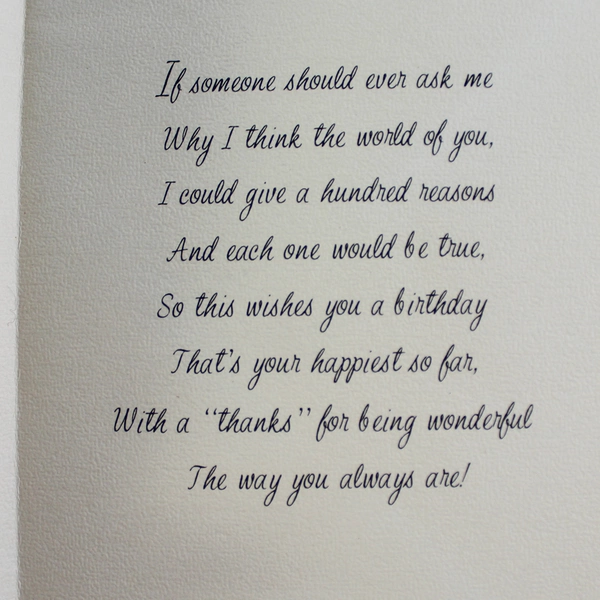 If someone should ever ask me
Why I think the world of you,
I could give a hundred reasons
And each one would be true,
So this wishes you a birthday
That's your happiest so far,
With a “thanks” for being wonderful
The way you always are!